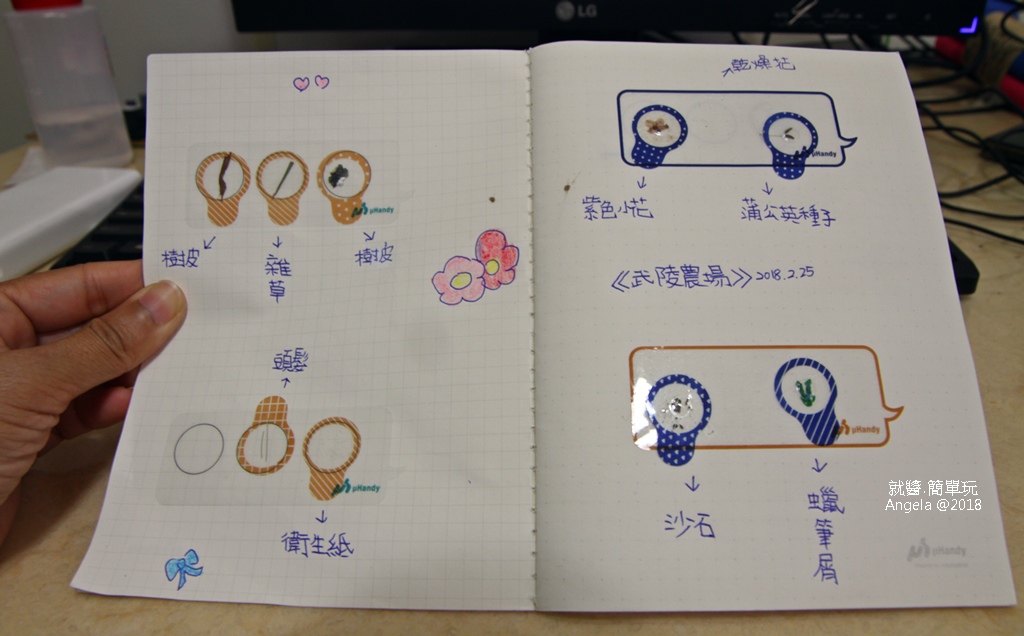 LG
μHandy
樹皮
雜草
樹皮
頭髮
μHandy
衛生紙
乾燥花
μHandy
紫色小花
蒲公英種子
《武陵農場》2018.2.25
μHandy
沙石
蠟筆屑
μHandy
就醬.簡單玩
Angela @2018